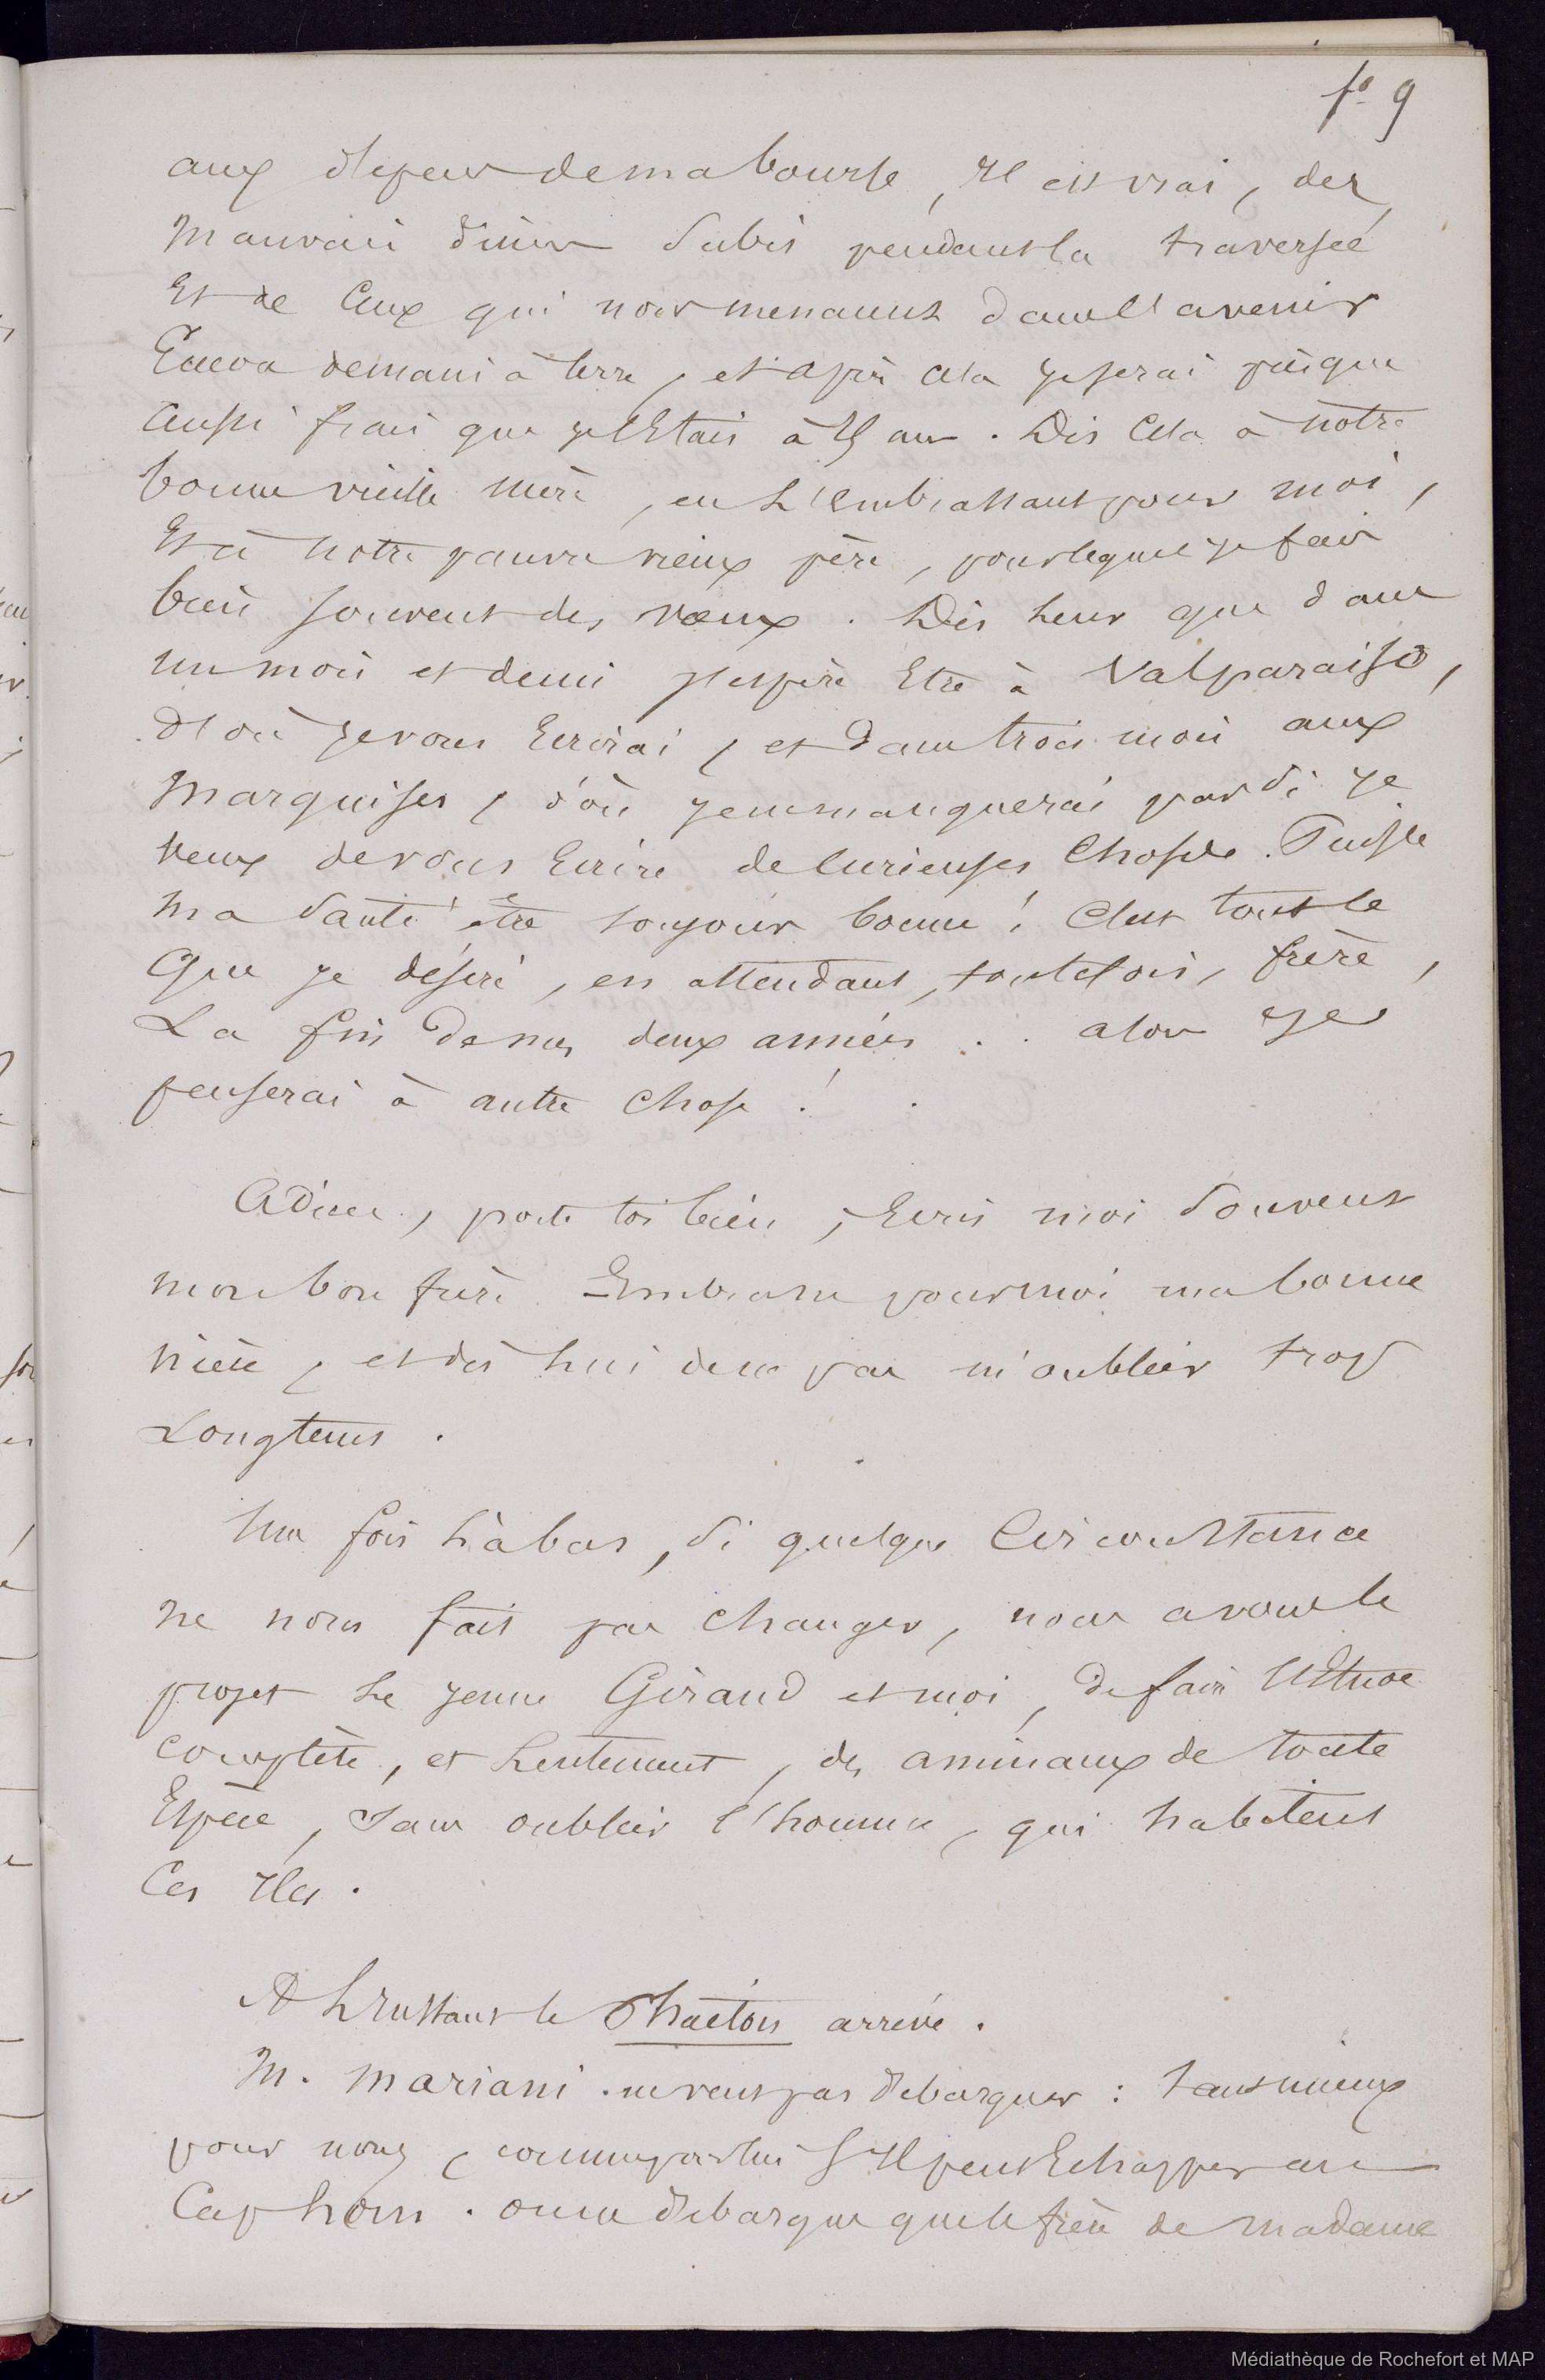 fo 9
aux dépens de ma bourse, Il est vrai, des
mauvais diners Subis pendant la traversée
Et de Ceux qui nous menacent dans l'avenir
demain à terre, et après cela je serai presque
Aussi frais que je l'Etais à ans. Dis Cela à nôtre
bonne vieille Mère, en L'Embrassant pour moi,
Et à notre pauvre vieux père, pour lequel je fais
bien souvent des vœux. Dis leur que dans
un mois et demi j'espère Etre à Valparaiso,
d'où je vous Ecrirai, et dans trois mois aux
Marquises, d'où je ne manquerai pas si je
veux de vous Ecrire de Curieuses Choses. Puisse
ma Santé être toujours bonne! C'est tout ce
Que je désire, en attendant, toutefois, frère,
La fin de mes deux années .. alors je
penserai à autre Chose!
Adieu, porte toi bien, Ecris moi Souvent
mon bon frère. Embrasse pour moi ma bonne
nièce, et dis lui de ne pas m'oublier trop
Longtems.
Une fois là bas, si quelque Circonstance
ne nous fait pas Changer, nous avons le
projet le jeune Giraud et moi, de faire l'Etude
complète, et Lentement, des animaux de toute
Espèce, Sans oublier l'homme, qui habitent
Ces Iles.
A L'Instant le Phaéton arrive.
M. Mariani ne veut pas débarquer: tant mieux
pour nous, comme pour lui S'Il peut Echapper au
Cap horn. on ne débarque que le frère de Madame
Médiathèque de Rochefort et MAP